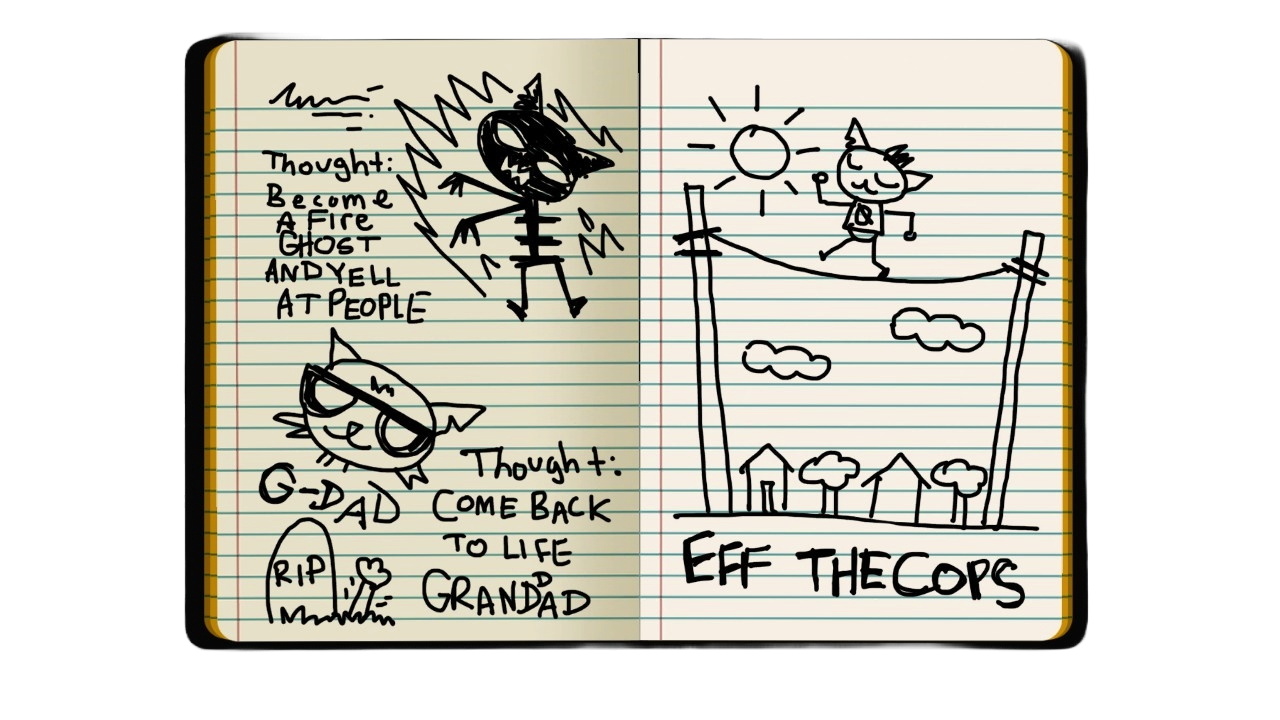 Thought:
Become
A Fire
GHOST
AND YELL
AT PEOPLE
G-DAD
RIP
Thought:
COME BACK
TO LIFE
GRANDDAD
EFF THE COPS